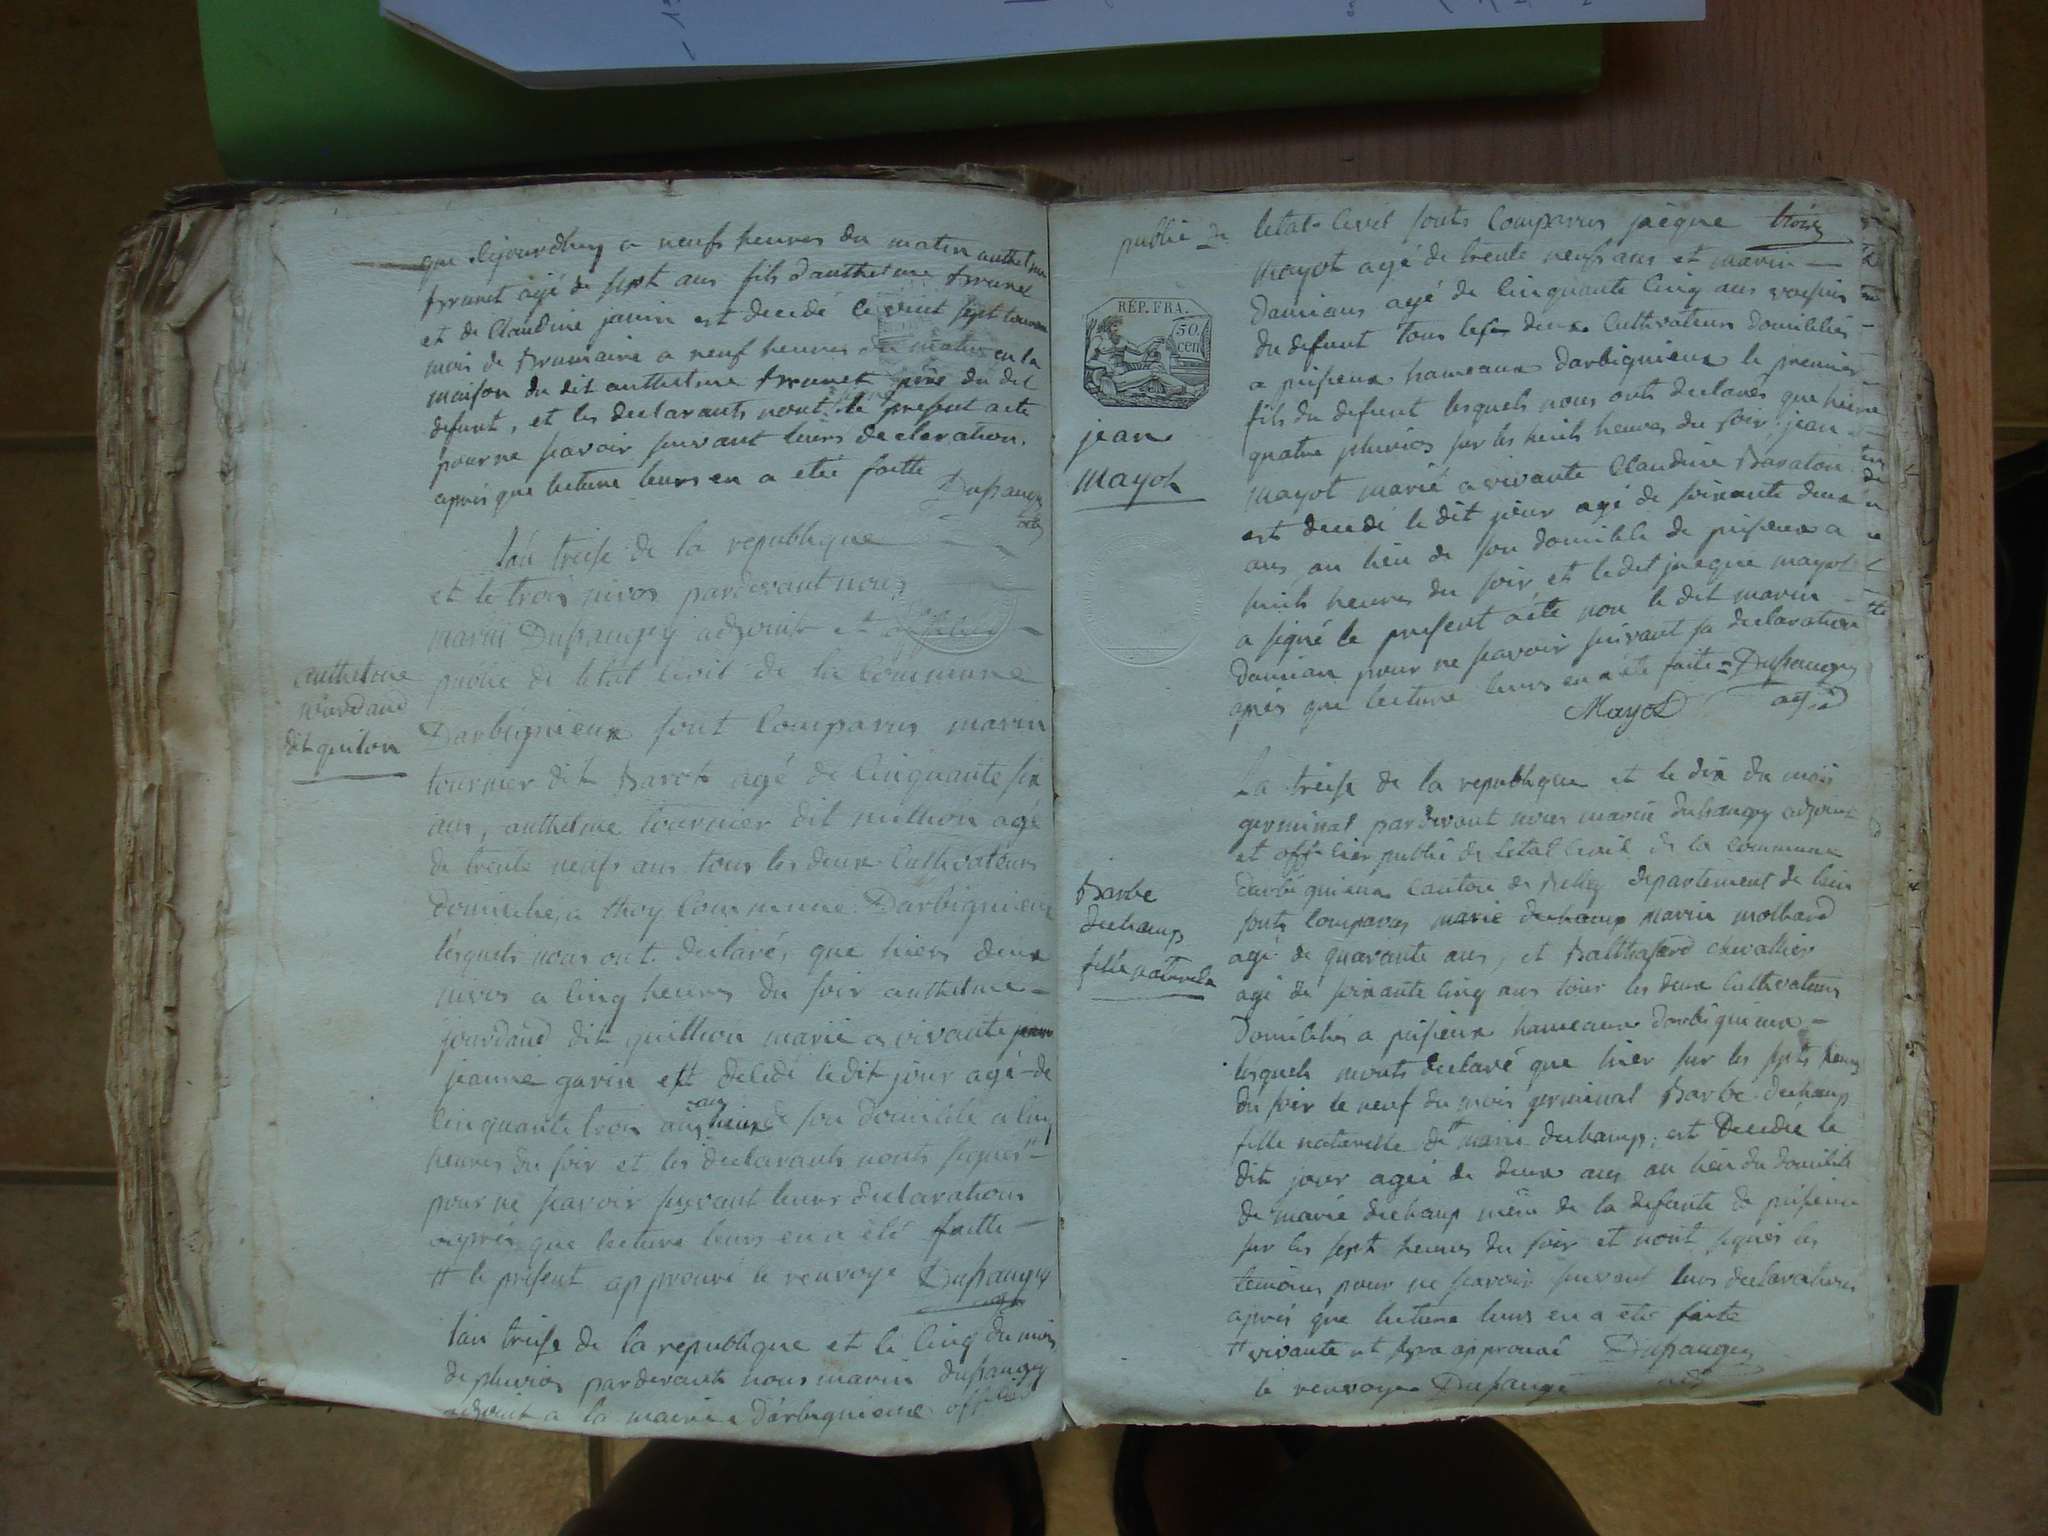 que dejourdhuy a neufs heures du matin anthelme
Brunet agé de sept ans fils danthelme Brunet
et de Claudine janin est decedé le vint sept
mois de Brumaire a neuf heures du matin en la
maison du dit anthelme Brunet père du dit
defunt, et les declarants nont le present acte
pour ne scavoir suivant leurs declaration.
après que lecture leurs en a eté faitte
Dusaugey
adj
lan treise de la republique
et le trois nivos pardevant nous
marin Dusaugey adjoint et officier
public de letat civil de la commune
Darbignieux sont Comparus marin
tournier dit Baroh agé de Cinquante six
ans, anthelme tournier dit muthon agé
de trente neufs ans tous les deux Cultivateurs
domiciliés a thoy Commune Darbignieux
lesquels nous ont declarés que hiers deux
nivos a cinq heures du soir anthelme
jourdand dit guillon marié a vivante
jeanne garin est decedé ledit jour agé de
cinquante trois ans au lieux de son domicile a cinq
heures du soir et les declarants nonts signés #
pour ne scavoir suivant leurs declarations
après que lecture leurs en a été faitte
# le présent approuvé le renvoye Dusaugey
adj
anthelme
jourdand
dit guilon
lan treise de la republique et le cinq du mois
de pluvios pardevant nous marin dusaugey
adjoint a la mairie Darbignieux officier
public de letat civil sonts Comparus jacque trois
mayot agé de trente neufs ans et marin
Damians agé de Cinquante Cinq ans voisin
du defunt tous les deux Cultivateurs domiciliés
a peisieux hameaux darbignieux le premier
fils du defunt lesquels nous onts declarés que hierre
quatre pluvios sur les huits heures du soir jean
mayot marié a vivante Claudine Baraton
est decedé le dit jour agé de soixante deux
ans au lieu de son domicile de peisieux a
huits heures du soir et ledit jacque mayot
a signé le present acte non le dit marin
damian pour ne scavoir suivant sa declaration
après que lecture leurs en a eté faite = Dusaugey
Mayot
adj
RÉP. FRA.
50
cen
jean
mayot
La treise de la republique et le dix du mois
germinal pardevant nous marin dusaugey adjoint
et officier public de letat civil de la commune
darbignieux canton de Belley departement de lain
sonts comparus marie duchamp marin molhard
agé de quarante ans, et Balthasard chevallier
agé de soixante cinq ans tous les deux Cultivateurs
Domiciliés a peisieux hameaux darbignieux
lesquels nonts declaré que hier sur les septs heures
du soir le neuf du mois germinal Barbe duchamp
fille naturelle de # marie duchamp, est Decedée le
dit jour ageé de deux ans au lieu du domicile
de marie duchamp mère de la defunte de peisieux
sur les sept heures du soir et nont signés les
temoins pour ne scavoir suivant leurs declarations
après que lecture leurs en a eté faite
# vivante et sera approuvé Dusaugey
le renvoye Dusaugé adj
Barbe
duchamp
fille naturele